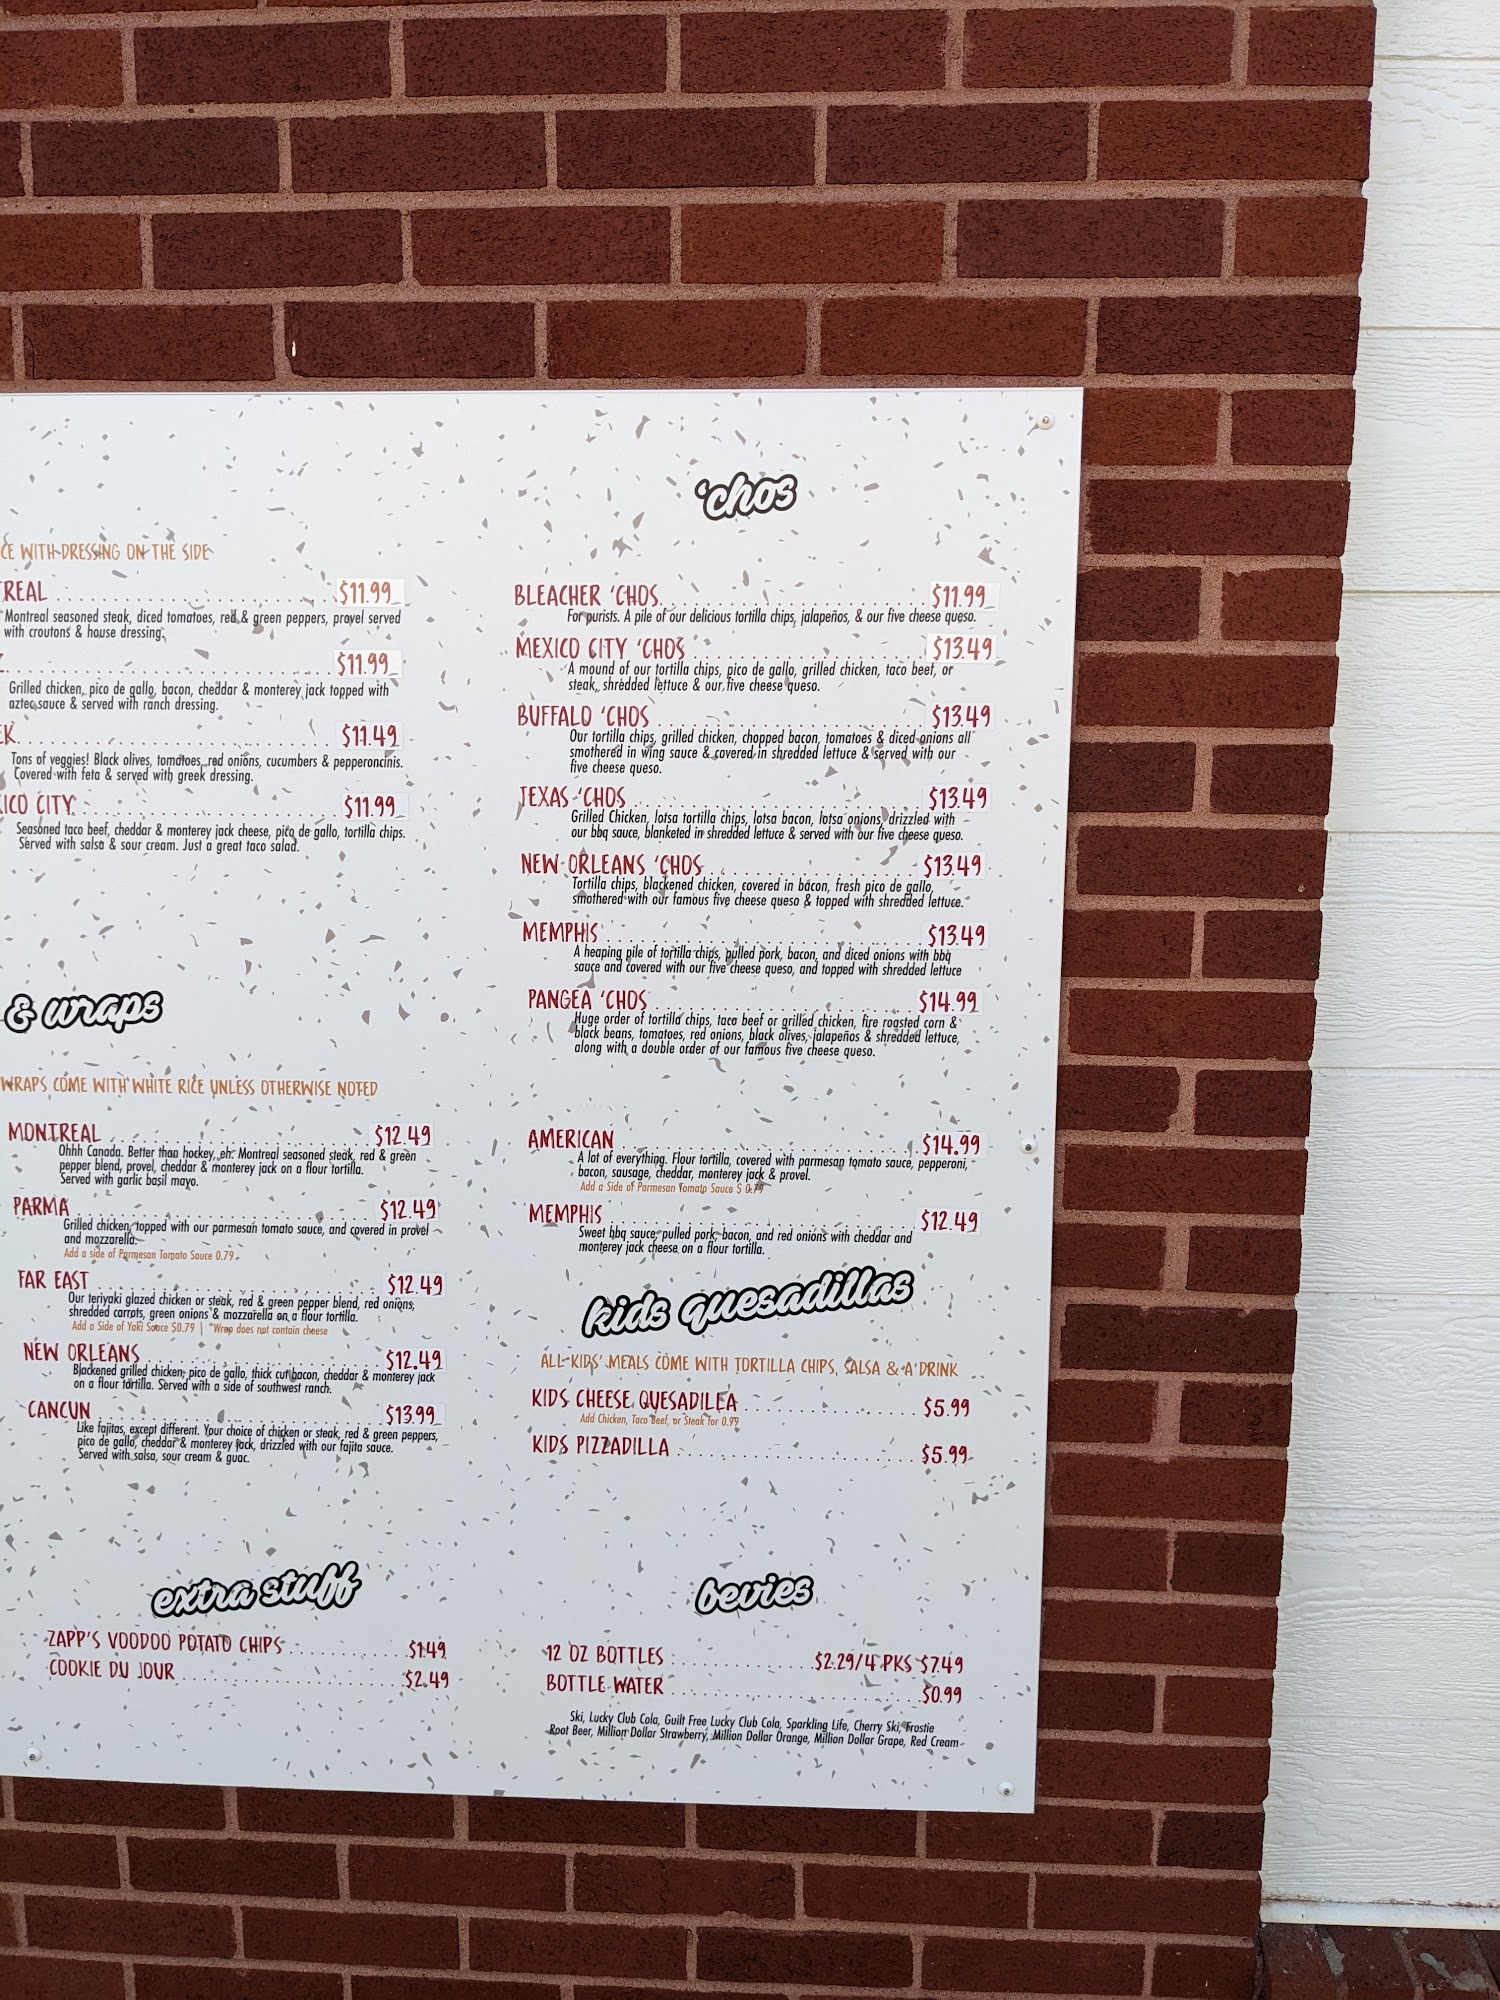 CE WITH DRESSING ON THE SIDE
REAL $11.99
Montreal seasoned steak, diced tomatoes, red & green peppers, provel served
with croutons & house dressing.
$11.99
Grilled chicken, pico de gallo, bacon, cheddar & monterey jack topped with
aztec sauce & served with ranch dressing.
EK $11.49
Tons of veggies! Black olives, tomatoes, red onions, cucumbers & pepperoncinis.
Covered with feta & served with greek dressing.
ICO CITY $11.99
Seasoned taco beef, cheddar & monterey jack cheese, pico de gallo, tortilla chips.
Served with salsa & sour cream. Just a great taco salad.
& wraps
WRAPS COME WITH WHITE RICE UNLESS OTHERWISE NOTED
MONTREAL $12.49
Ohhh Canada. Better than hockey, eh. Montreal seasoned steak, red & green
pepper blend, provel, cheddar & monterey jack on a flour tortilla.
Served with garlic basil mayo.
PARMA $12.49
Grilled chicken, topped with our parmesan tomato sauce, and covered in provel
and mozzarella.
Add a side of Parmesan Tomato Sauce 0.79
FAR EAST $12.49
Our teriyaki glazed chicken or steak, red & green pepper blend, red onions,
shredded carrots, green onions & mozzarella on a flour tortilla.
Add a Side of Yaki Sauce $0.79 | *Wrap does not contain cheese
NEW ORLEANS $12.49
Blackened grilled chicken, pico de gallo, thick cut bacon, cheddar & monterey jack
on a flour tortilla. Served with a side of southwest ranch.
CANCUN $13.99
Like fajitas, except different. Your choice of chicken or steak, red & green peppers,
pico de gallo, cheddar & monterey jack, drizzled with our fajita sauce.
Served with salsa, sour cream & guac.
extra stuff
ZAPP'S VOODOO POTATO CHIPS $1.49
COOKIE DU JOUR $2.49
'chos
BLEACHER 'CHOS $11.99
For purists. A pile of our delicious tortilla chips, jalapeños, & our five cheese queso.
MEXICO CITY 'CHOS $13.49
A mound of our tortilla chips, pico de gallo, grilled chicken, taco beef, or
steak, shredded lettuce & our five cheese queso.
BUFFALO 'CHOS $13.49
Our tortilla chips, grilled chicken, chopped bacon, tomatoes & diced onions all
smothered in wing sauce & covered in shredded lettuce & served with our
five cheese queso.
TEXAS 'CHOS $13.49
Grilled Chicken, lotsa tortilla chips, lotsa bacon, lotsa onions, drizzled with
our bbq sauce, blanketed in shredded lettuce & served with our five cheese queso.
NEW ORLEANS 'CHOS $13.49
Tortilla chips, blackened chicken, covered in bacon, fresh pico de gallo,
smothered with our famous five cheese queso & topped with shredded lettuce.
MEMPHIS $13.49
A heaping pile of tortilla chips, pulled pork, bacon, and diced onions with bbq
sauce and covered with our five cheese queso, and topped with shredded lettuce
PANGEA 'CHOS $14.99
Huge order of tortilla chips, taco beef or grilled chicken, fire roasted corn &
black beans, tomatoes, red onions, black olives, jalapeños & shredded lettuce,
along with a double order of our famous five cheese queso.
AMERICAN $14.99
A lot of everything. Flour tortilla, covered with parmesan tomato sauce, pepperoni,
bacon, sausage, cheddar, monterey jack & provel.
Add a Side of Parmesan Tomato Sauce $ 0.79
MEMPHIS $12.49
Sweet bbq sauce, pulled pork, bacon, and red onions with cheddar and
monterey jack cheese on a flour tortilla.
kids quesadillas
ALL KIDS' MEALS COME WITH TORTILLA CHIPS, SALSA & A DRINK
KIDS CHEESE QUESADILLA $5.99
Add Chicken, Taco Beef, or Steak for 0.99
KIDS PIZZADILLA $5.99
bevies
12 OZ BOTTLES $2.29/4 PKS $7.49
BOTTLE WATER $0.99
Ski, Lucky Club Cola, Guilt Free Lucky Club Cola, Sparkling Life, Cherry Ski, Frostie
Root Beer, Million Dollar Strawberry, Million Dollar Orange, Million Dollar Grape, Red Cream